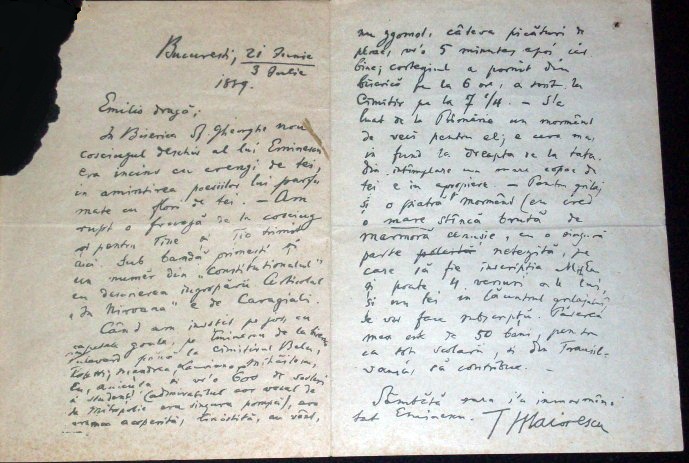 București, 21 Iunie
3 Iulie
1889.
Emilie dragă,
În Biserica Sf. Gheorghe nou
cosciugul deschis al lui Eminescu
era încins cu crengi de tei,
în amintirea poeziilor lui parfu
mate cu flori de tei. — Am
rupt o frunză de la cosciug
și pentru Tine și Ție trimit
aici. Sub bandă primești și
un număr din "Constituționalul"
cu descrierea îngropării. Articolul
"În Nirvana" e de Caragiali.
Când am însoțit pe jos, cu
capetele goale, pe Eminescu de la
Bulevard până la Cimitirul Belu,
eu, și vr'o 600 de
și studenți (admirabilul cor vocal de
la Mitropolie era singura pompă), era
vremea acoperită, liniștită, au căzut,
nu zgomot, câteva picături de
ploaie, vr'o 5 minute, apoi iar
bine; cortegiul a pornit din
biserică pe la 6 ore, a sosit la
Cimitir pe la 7 1/4. — S'a
luat de la Primărie un mormânt
de veci pentru el; e ceva mai
în fund la dreapta de la tata.
Din întâmplare un mare copac de
tei e în apropiere. — Pentru grilaj
și o piatră mormânt (eu cred
o mare stâncă brută de
marmoră cenușie, cu o singură
parte netezită, pe
care să fie inscripția
și poate 4 versuri a lui,
și un tei în lăuntrul grilajului)
se va face subscripție. Părerea
mea este de 50 bani, pentru
ca toți școlarii, și din Transil-
vania, să contribue. —
Sâmbătă seara s'a înmormân-
tat Eminescu. T Maiorescu